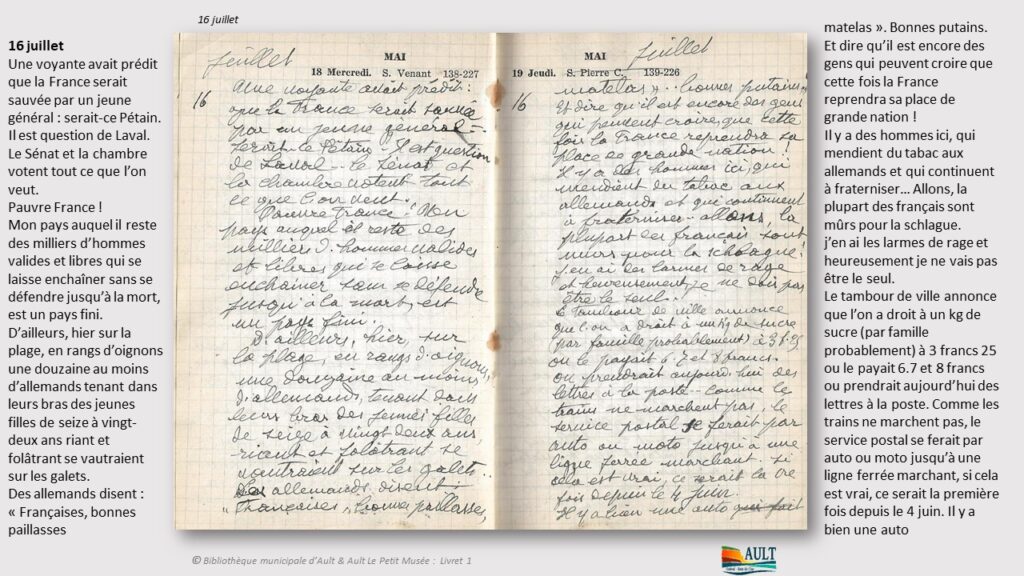 16 juillet
16 juillet
Une voyante avait prédit
que la France serait
sauvée par un jeune
général : serait-ce Pétain.
Il est question de Laval.
Le Sénat et la chambre
votent tout ce que l’on
veut.
Pauvre France !
Mon pays auquel il reste
des milliers d’hommes
valides et libres qui se
laisse enchaîner sans se
défendre jusqu’à la mort,
est un pays fini.
D’ailleurs, hier sur la
plage, en rangs d’oignons
une douzaine au moins
d’allemands tenant dans
leurs bras des jeunes
filles de seize à vingt-
deux ans riant et
folâtrant se vautraient
sur les galets.
Des allemands disent :
« Françaises, bonnes
paillasses
juillet
MAI
18 Mercredi. S. Venant 138-227
16
Une voyante avait prédit :
que la France serait sauvée
par un jeune général -
serait-ce Pétain - Il est question
de Laval - le Sénat et
la chambre votent tout
ce que l'on veut.
Pauvre France ! Mon
pays auquel il reste des
milliers d'hommes valides
et libres qui se laisse
enchaîner sans se défendre
jusqu'à la mort, est
un pays fini.
D'ailleurs, hier, sur
la plage, en rangs d'oignons,
une douzaine au moins
d'allemands, tenant dans
leurs bras des jeunes filles
de seize à vingt deux ans,
riant et folâtrant se
vautraient sur les galets.
Des allemands disent :
"Françaises, bonnes paillasses,
juillet
MAI
19 Jeudi. S. Pierre C. 139-226
16
matelas ». bonnes putains"
Et dire qu'il est encore des gens
qui peuvent croire, que cette
fois la France reprendra sa
place de grande nation !
Il y a des hommes ici, qui
mendient du tabac aux
allemands et qui continuent
à fraterniser - allons, la
plupart des français sont
mûrs pour la schlague !
j'en ai des larmes de rage
et heureusement je ne suis pas
être le seul.
Le tambour de ville annonce
que l'on a droit à un kg de sucre
(par famille probablement) à 3f.25
ou le payait 6.7 et 8 francs.
on prendrait aujourd'hui des
lettres à la poste - comme les
trains ne marchent pas, le
service postal se ferait par
auto ou moto jusqu'à une
ligne ferrée marchant - si
cela est vrai, ce serait la 1re
fois depuis le 4 juin.
Il y a bien une auto qui fait
matelas ». Bonnes putains.
Et dire qu’il est encore des
gens qui peuvent croire que
cette fois la France
reprendra sa place de
grande nation !
Il y a des hommes ici, qui
mendient du tabac aux
allemands et qui continuent
à fraterniser… Allons, la
plupart des français sont
mûrs pour la schlague.
j’en ai les larmes de rage et
heureusement je ne vais pas
être le seul.
Le tambour de ville annonce
que l’on a droit à un kg de
sucre (par famille
probablement) à 3 francs 25
ou le payait 6.7 et 8 francs
ou prendrait aujourd’hui des
lettres à la poste. Comme les
trains ne marchent pas, le
service postal se ferait par
auto ou moto jusqu’à une
ligne ferrée marchant, si cela
est vrai, ce serait la première
fois depuis le 4 juin. Il y a
bien une auto
© Bibliothèque municipale d’Ault & Ault Le Petit Musée : Livret 1
AULT